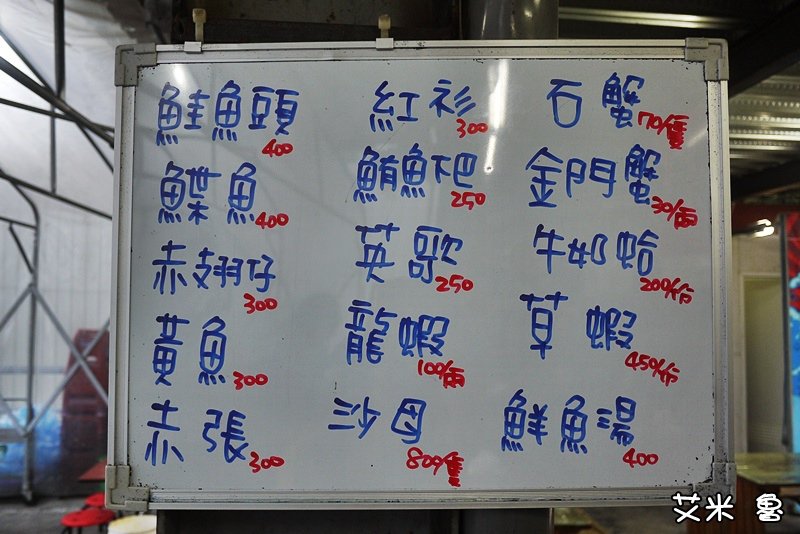 鮭魚頭 400
鰈魚 400
赤翅仔 300
黃魚 300
赤張 300
紅衫 300
鮪魚肥 250
英歌 250
龍蝦 100/兩
沙母 80/隻
石蟹 170/隻
金門蟹 30/兩
牛奶蛤 200/份
草蝦 450/份
鮮魚湯 400
艾米魯